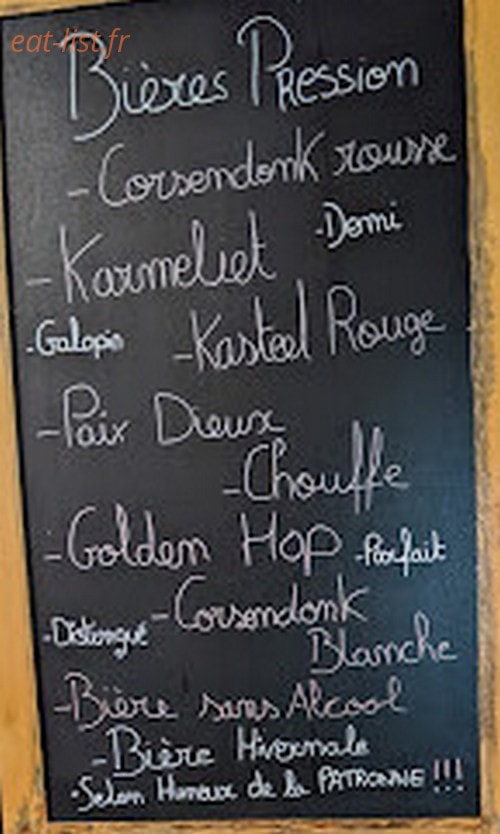 eat-list.fr
Bières Pression
- Corsendonk rousse
- Demi
- Karmeliet
- Galopin
- Kasteel Rouge
- Paix Dieux
- Chouffe
- Golden Hop
- Parfait
- Corsendonk
- Distingué
Blanche
- Bière sans Alcool
- Bière Hivernale
- Selon Humeur de la PATRONNE !!!